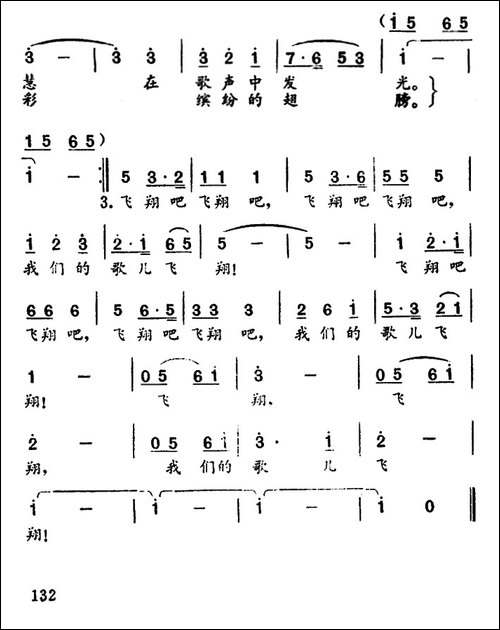 (i̇ 5 6 5
3̇ — | 3̇ 3̇ | 3̇ 2̇ i̇ | 7·6 5 3 | i̇ —
慧 在 歌声中发 光。
彩 缤纷的翅 膀。}
i̇ 5 6 5)
i̇ — :‖ 5 3·2 | 1 1 1 | 5 3·6 | 5 5 5 |
3.飞翔吧飞翔吧, 飞翔吧飞翔吧,
i̇ 2̇ 3̇ | 2̇·i̇ 6 5 | 5 — | — | i̇ 2̇·i̇ |
我们的歌儿飞 翔! 飞翔吧
6 6 6 | 5 6·5 | 3 3 3 | 2 6 i̇ | 5·3 2 1 |
飞翔吧, 飞翔吧飞翔吧, 我们的歌儿飞
1 — | 0 5 6 i̇ | 3̇ — | 0 5 6 i̇ |
翔! 飞 翔、 飞
2̇ — | 0 5 6 i̇ | 3̇· i̇ | 2̇ — |
翔, 我们的歌 儿 飞
i̇ — | i̇ — | i̇ — | i̇ 0 ‖
翔!
132